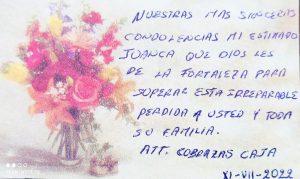 NUESTRAS MAS SINCERAS
CONDOLENCIAS MI ESTIMADO
JUANCA QUE DIOS LES
DE LA FORTALEZA PARA
SUPERAR ESTA IRREPARABLE
PERDIDA A USTED Y TODA
SU FAMILIA.
ATT. COBRAZAS CAJA
XI-VII-2022